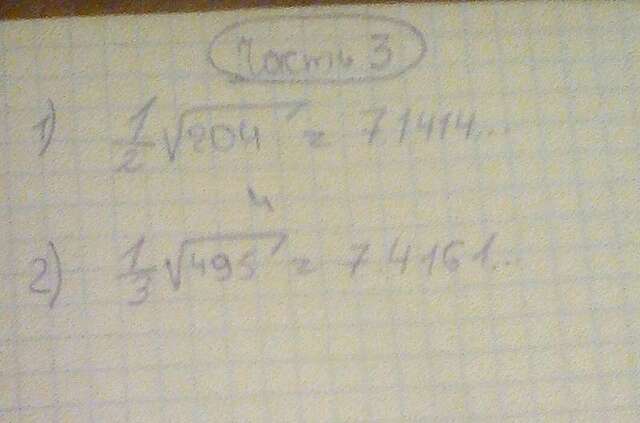 Часть 3
1) 1/2 √204 = 71414...
2) 1/3 √495 = 74161...